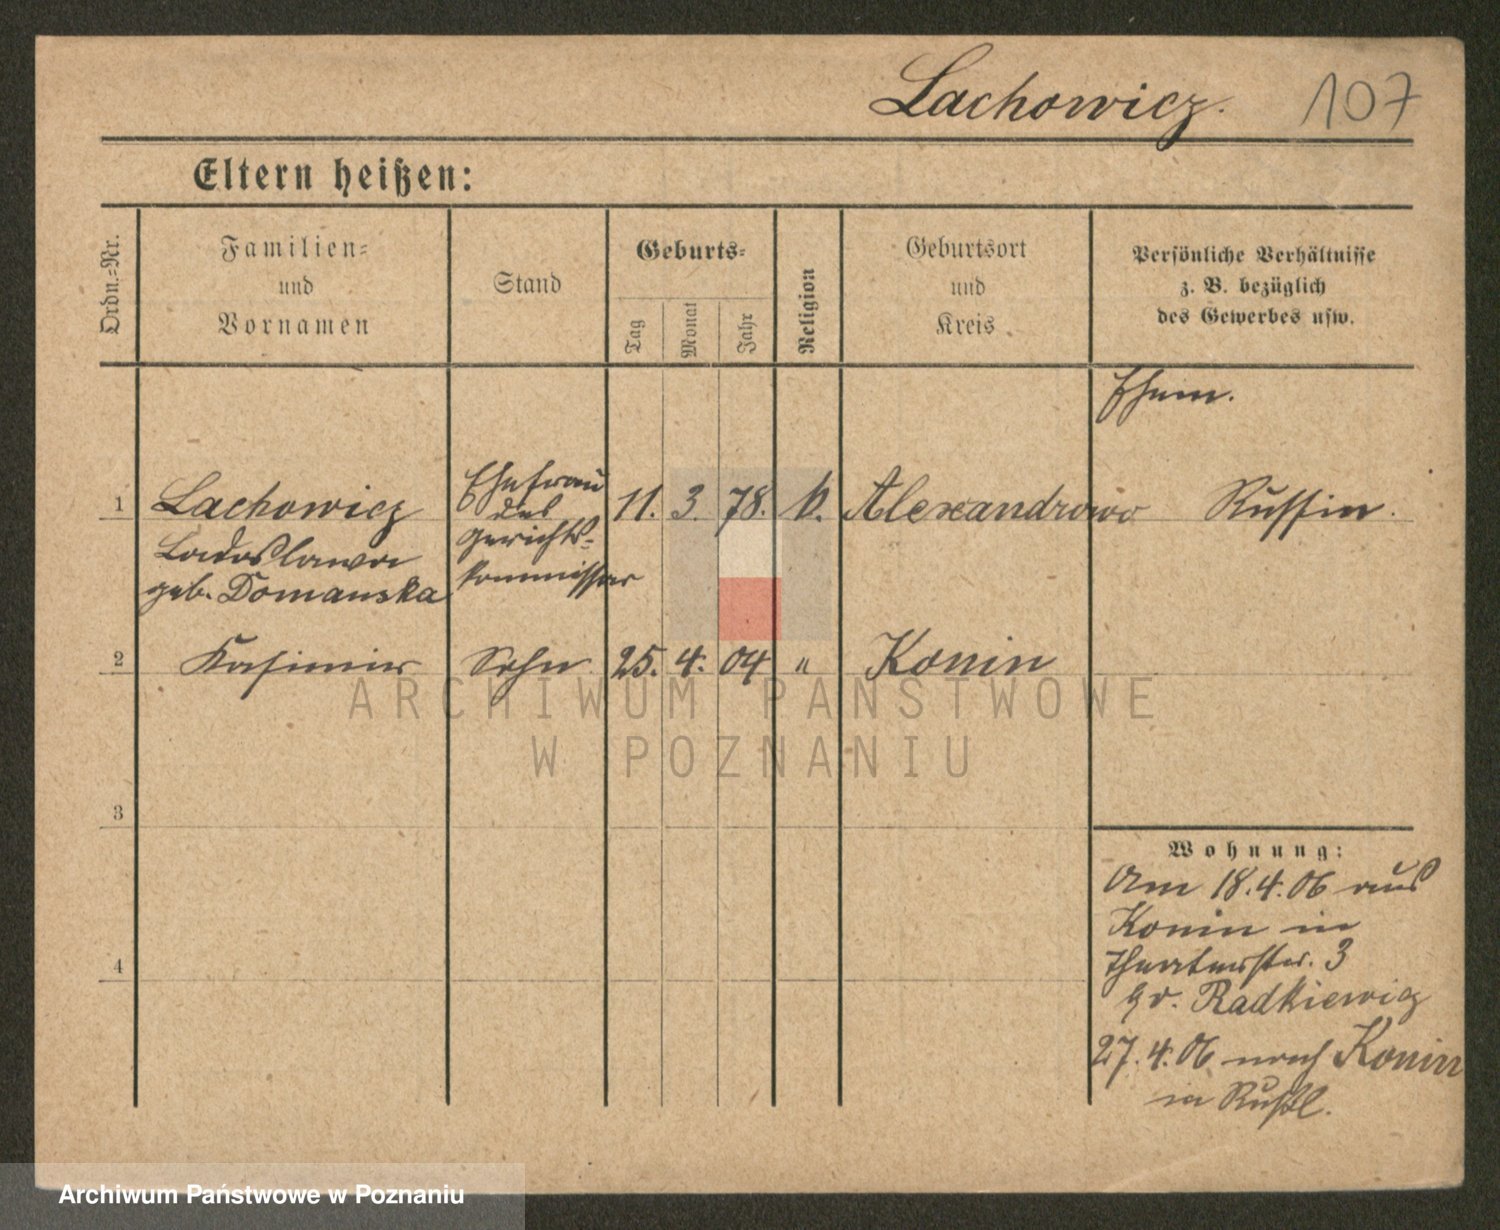 Lachowicz. 107
Eltern heißen:
Ordn.=Nr.
Familien=
und
Vornamen
Stand
Geburts=
Tag
Monat
Jahr
Religion
Geburtsort
und
Kreis
Persönliche Verhältnisse
z. B. bezüglich
des Gewerbes usw.
1
Lachowicz
Ladislawa
geb. Domanska
Ehefrau
des
Gerichts=
kommissar
11. 3. 78. k. Alexandrowo Russin.
2 Kasimir Sohn 25. 4. 04 " Konin
3
4
Wohnung:
Am 18.4.06 aus
Konin in
Theaterstr. 3
Radkiewicz
27.4.06 nach Konin
in Rußl.
ARCHIWUM PAŃSTWOWE
W POZNANIU
Archiwum Państwowe w Poznaniu